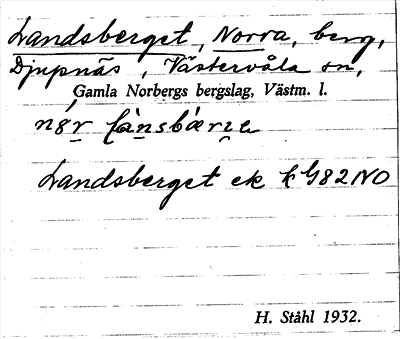 Landsberget, Norra, berg,
Djupnäs, Västervåla sn,
Gamla Norbergs bergslag, Västm. l.
Landsberget ek k G82 NO
H. Ståhl 1932.